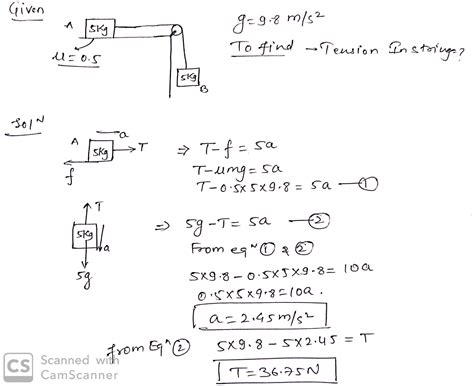 Given
A
5kg
5kg
B
μ=0.5
g=9.8 m/s²
To find → Tension In strings?
Solᴺ
A
a
5kg
T
f
⇒ T-f = 5a
T-μmg = 5a
T-0.5x5x9.8 = 5a —①
T
5kg
a
5g
⇒ 5g-T = 5a —②
From eqⁿ ① & ②
5x9.8 - 0.5x5x9.8 = 10a
0.5x5x9.8 = 10a.
a = 2.45 m/s²
from Eqⁿ ② 5x9.8 - 5x2.45 = T
T = 36.75N
CS Scanned with
CamScanner